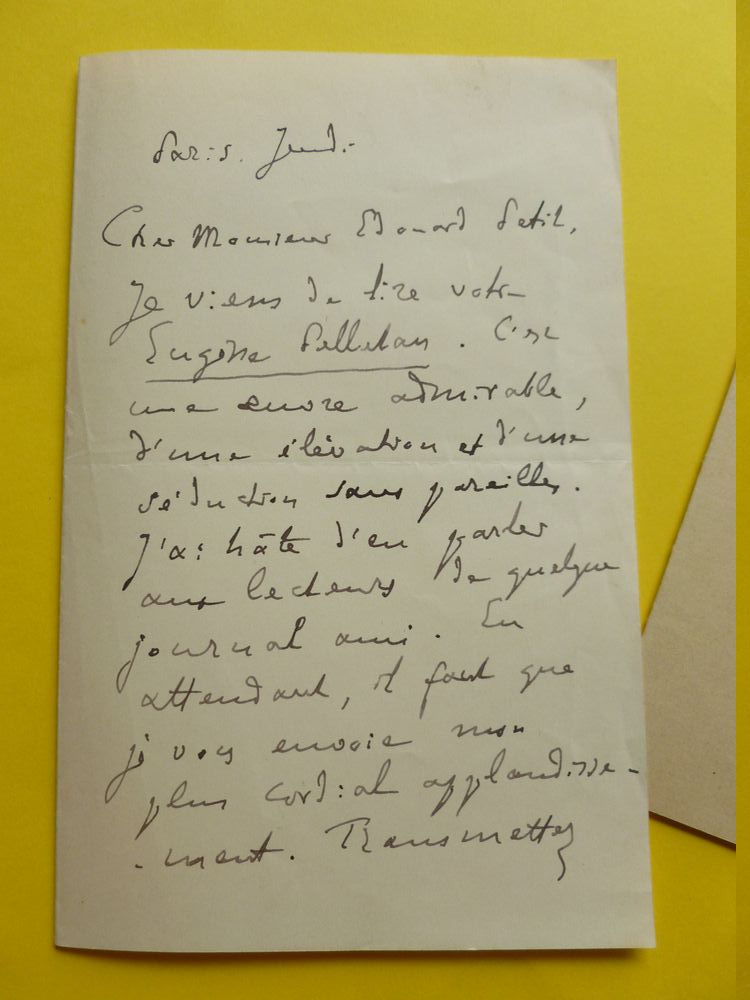 Paris. Jeudi
Cher Monsieur Edouard Petit,
Je viens de lire votre
Eugène Pelletan. C'est
une œuvre admirable,
d'une élévation et d'une
séduction sans pareilles.
J'ai hâte d'en parler
aux lecteurs de quelque
journal ami. En
attendant, il faut que
je vous envoie mon
plus cordial applaudisse-
-ment. Transmettez